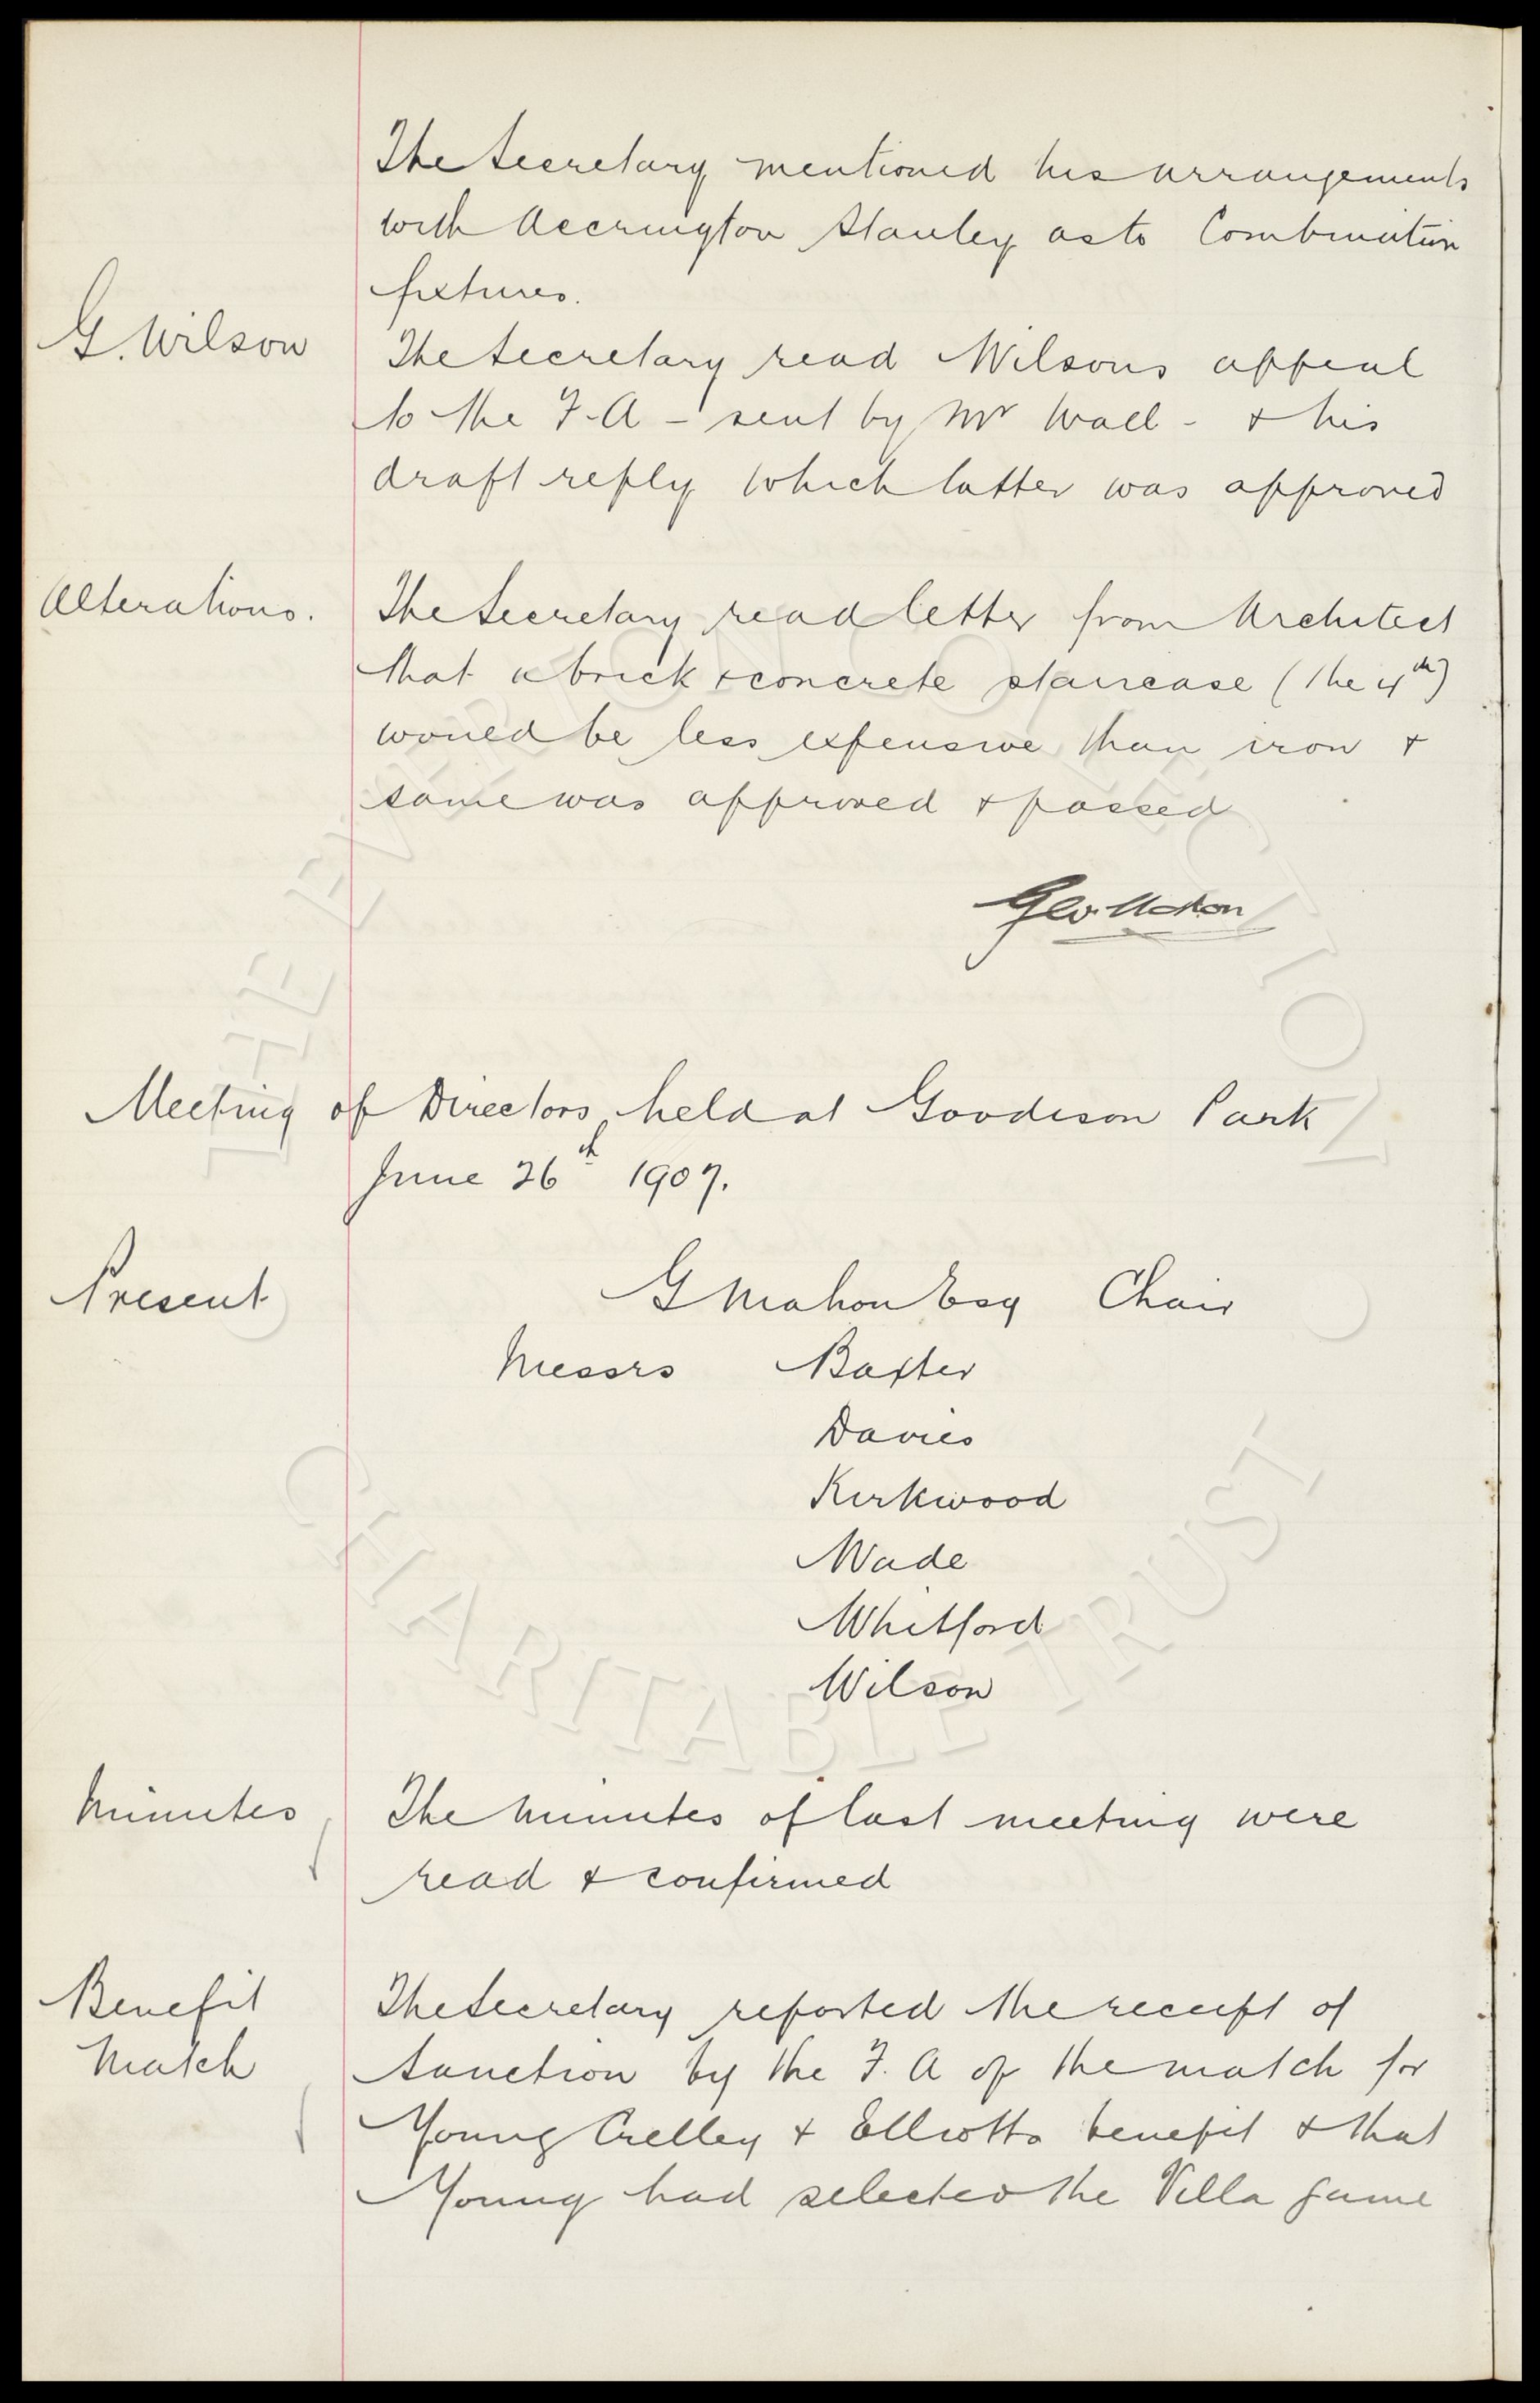 The Secretary mentioned his arrangements
with Accrington Stanley as to Combination
fixtures.
G. Wilson
The Secretary read Wilsons appeal
to the F.A - sent by Mr Wall - & his
draft reply which latter was approved
Alterations.
The Secretary read letter from Architect
that a brick & concrete staircase (the 4th)
would be less expensive than iron &
same was approved & passed
Geo. Mahon
Meeting of Directors held at Goodison Park
June 26th 1907.
Present
G Mahon Esq Chair
Messrs Baxter
Davies
Kirkwood
Wade
Whitford
Wilson
Minutes
The Minutes of last meeting were
read & confirmed
Benefit
Match
The Secretary reported the receipt of
Sanction by the F.A of the match for
Young Crelley & Elliotts benefit & that
Young had selected the Villa game
THE EVERTON COLLECTION
CHARITABLE TRUST